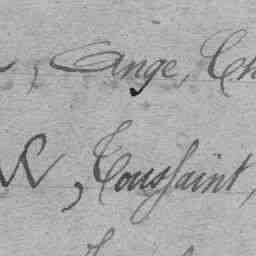 , Ange, Ch
, Toussaint,